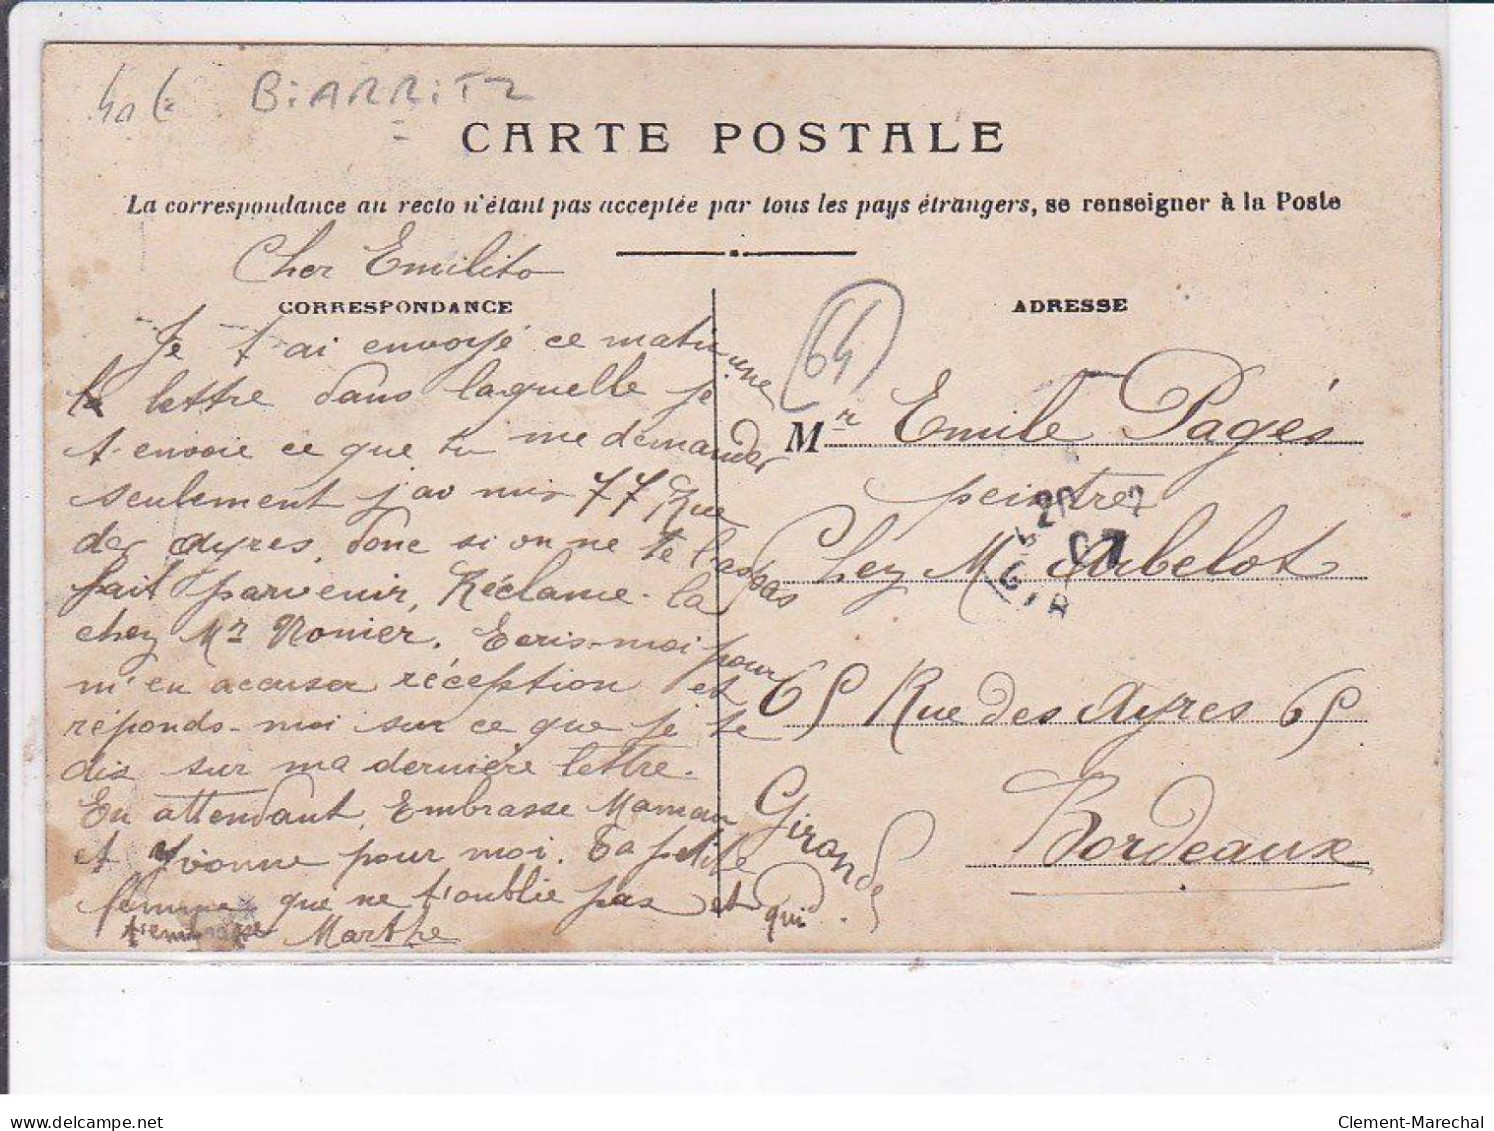 BiARRiTZ
CARTE POSTALE
La correspondance au recto n'étant pas acceptée par tous les pays étrangers, se renseigner à la Poste
Cher Emilito
CORRESPONDANCE
Je t'ai envoyé ce matin une
lettre dans laquelle je
t'envoie ce que tu me demandes
seulement j'ai mis 77 Rue
des ayres, donc si on ne te l'a pas
fait parvenir, Réclame-la
chez Mr Nonier. Ecris-moi pour
m'en accuser réception et
réponds-moi sur ce que je te
dis sur ma dernière lettre.
En attendant, Embrasse Maman
et Yvonne pour moi. Ta petite
femme que ne t'oublie pas et qui
t'embrasse Marthe
ADRESSE
64
Mr Emile Pagés
peintre
Chez Mr Arbelot
65 Rue des Ayres 65
Bordeaux
Gironde
07
delcampe.net
Clement-Marechal